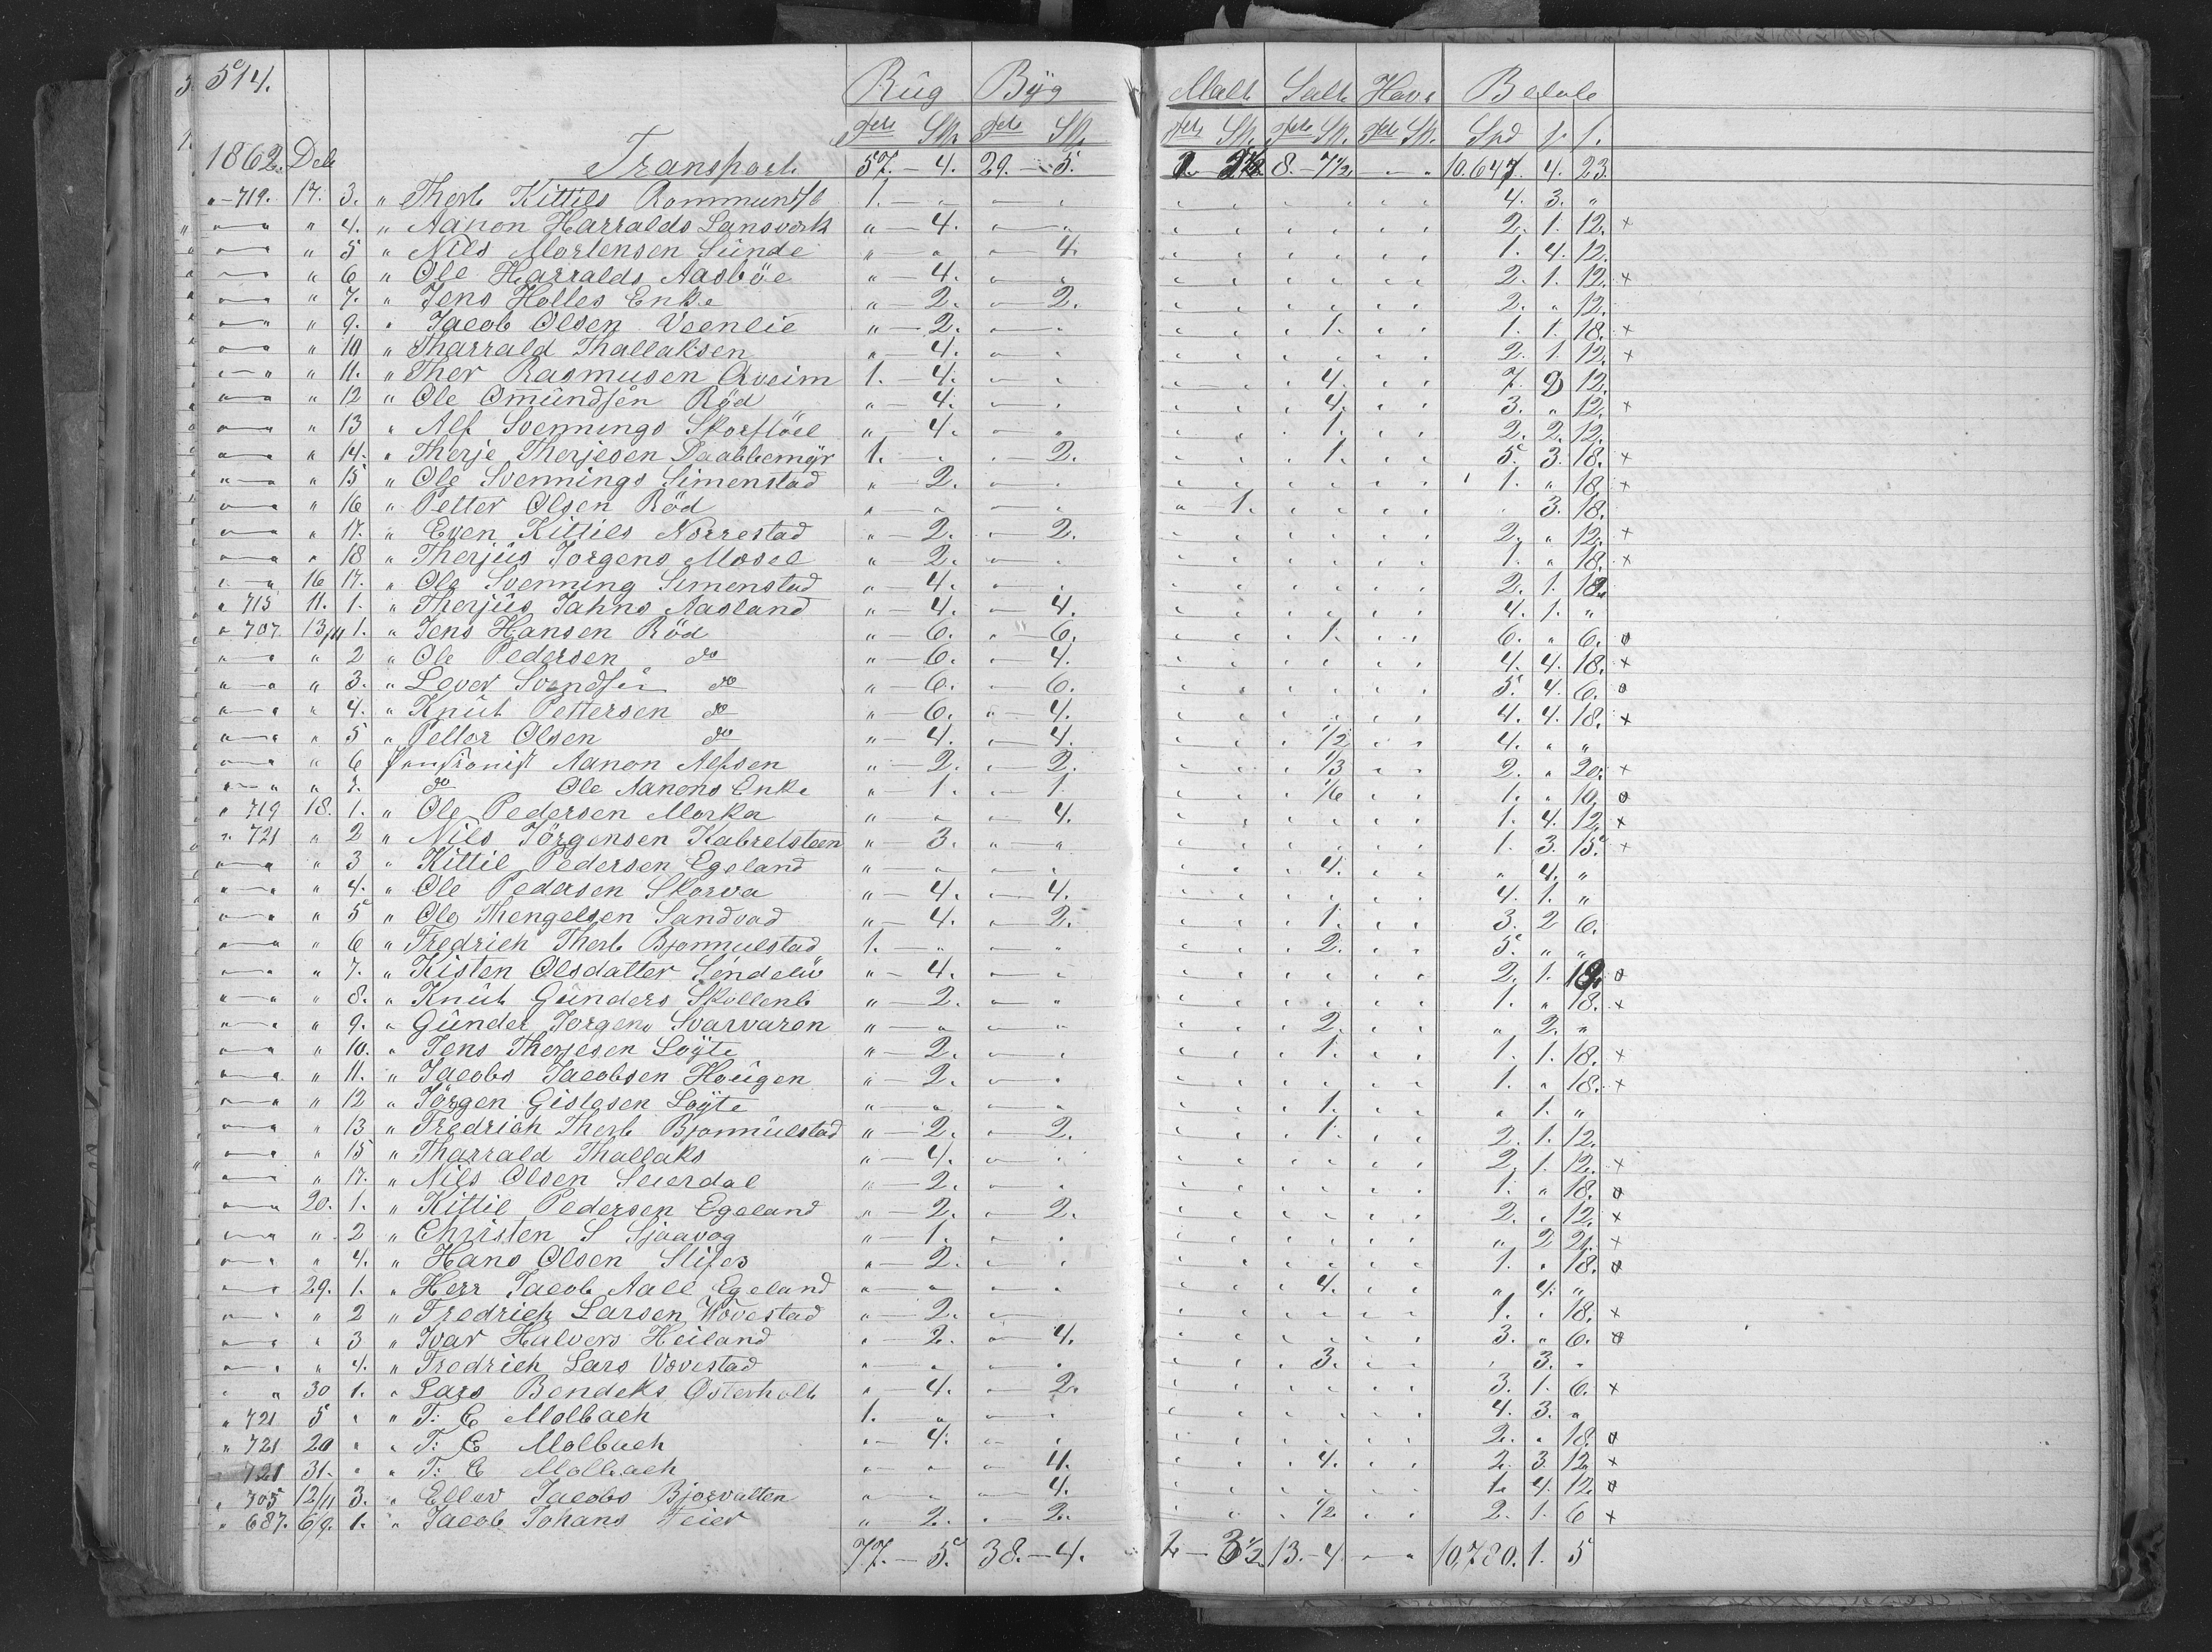 514. Rüg Byg Malt Salt Havr Beløb
Tdr Sk. Tdr Sk. Tdr Sk. Tdr Sk. Tdr Sk. Spd
1862. Transport 57. — 4. 29. — 5. 8. — 7½ 10.647 4. 23.
" — 719. 17. 3. " Therb Kittils Rommundsb 1. — 4. 3. "
" 4. " Aanon Harralds Lansverk " — 4. 2. 1. 12. +
" 5 " Nils Mortensen Sünde 4. 1. 4. 12.
" 6 " Ole Harralds Aasböe " — 4. 2. 1. 12. +
" 7. " Jens Holles Enke " — 2. 2. 2. " 12.
" 9. " Jacob Olsen Veenlie " — 2. 1. 1. 1. 18. +
" 10 " Tharrald Thallaksen " 4. 2. 1. 12. +
" 11. " Ther Rasmusen Aveim 1. 4. 4. 7. 2 12.
" 12 " Ole Omündsen Röd " 4. 4. 3. " 12. +
" 13 " Alf Svennings Skorflöel " 4. 1. 2. 2. 12.
" 14. " Therje Therjesen Daabbemyr 1. 2. 1. 5. 3. 18. +
" 15 " Ole Svennings Simenstad " 2. 1. " 18. +
" 16 " Petter Olsen Röd 1. 3. 18.
" 17. " Even Kittils Norrestad " 2. 2. 2. " 12. +
" 18 " Therjüs Jorgens Mosel " 2. 1. " 18. +
16 17. " Ole Svenning Simenstad " 4. 2. 1. 12.
" 715 11. 1. " Therjüs Jahns Aasland " — 4. 4. 4. 1. "
" 707. 13/11 1. " Jens Hansen Röd " — 6. 6. 1. 6. " 6. o
" 2 " Ole Pedersen do " — 6. 4. 4. 4. 18. +
" 3. " Lever Svendsen do " — 6. 6. 5. 4. 6. o
" 4. " Knüt Pettersen do " — 6. 4. 4. 4. 18. +
" 5 " Petter Olsen do " — 4. 4. 1/2 4. " "
" 6 Pensionist Aanon Alfsen " — 2. 2. 1/3 2. " 20. +
" 7. do Ole Aanons Enke " — 1. 1 1/6 1. " 10. o
" 719 18. 1. " Ole Pedersen Morka 4. 1. 4. 12. +
" 721 " 2 " Nils Jörgensen Kabrelsteen " 3. 1. 3. 15. +
" 3 " Kittil Pedersen Egeland 4. " 4. "
" 4. " Ole Pedersen Skorva " 4. 4. 4. 1. "
" 5 " Ole Thengelsen Sandvad " 4. 2. 1. 3. 2 6.
" 6 " Fredrich Therb Bjonnulstad 1. 2. 5. " "
" 7. " Kisten Olsdatter Söndelüv " — 4. 2. 1. 12. o
" 8. " Knüt Günders Skollenb " — 2. 1. " 18. +
" 9. " Günder Jorgens Svarvaren 2. " 2. "
" 10. " Jens Therjesen Loyte " — 2. 1. 1. 1. 18. +
" 11. " Jacobs Jacobsen Hoügen " 2. 1. " 18. +
" 12 " Jörgen Gislesen Loyte 1. " 1. "
" 13 " Fredrich Therb Bjonnülstad " — 2. 2. 1. 2. 1. 12.
" 15 " Tharrald Thallaks " — 4. 2. 1. 12. +
" 17. " Nils Olsen Seierdal " — 2. 1. " 18. o
20. 1. " Kittil Pedersen Egeland " — 2. 2. 2. " 12. +
" 2 " Christen S Sjaavog " — 1. " 2 21. +
" 4. " Hans Olsen Slifer " 2. 1. " 18. o
29. 1. " Herr Jacob Aall Egeland 4. " 4. "
" 2 " Fredrich Larsen Wovestad " — 2. 1. " 18. +
" 3 " Ivar Halvors Heiland " — 2. 4. 3. " 6. o
" 4. " Fredrich Lars Vovestad 3. " 3. "
30 1. " Lars Bendeks Østerholt " 4. 2. 3. 1. 6. +
" 721 5 " " T: C Molbach 1. 4. 3. "
" 721 20 " " T: C Molbach " 4. 2. " 18. o
721 31. " " T: C Molbach 4. 4. 2. 3 12. +
" 705 12/11 3. " Ellev Jacobs Bjorvatten 4. 1. 4. 12. o
" 687. 6/9. 1. " Jacob Johans Feier " 2. 2. 1/2 2. 1. 6 +
77. — 5. 38. — 4. 2 — 3½ 13. — 4. 10,780. 1. 5